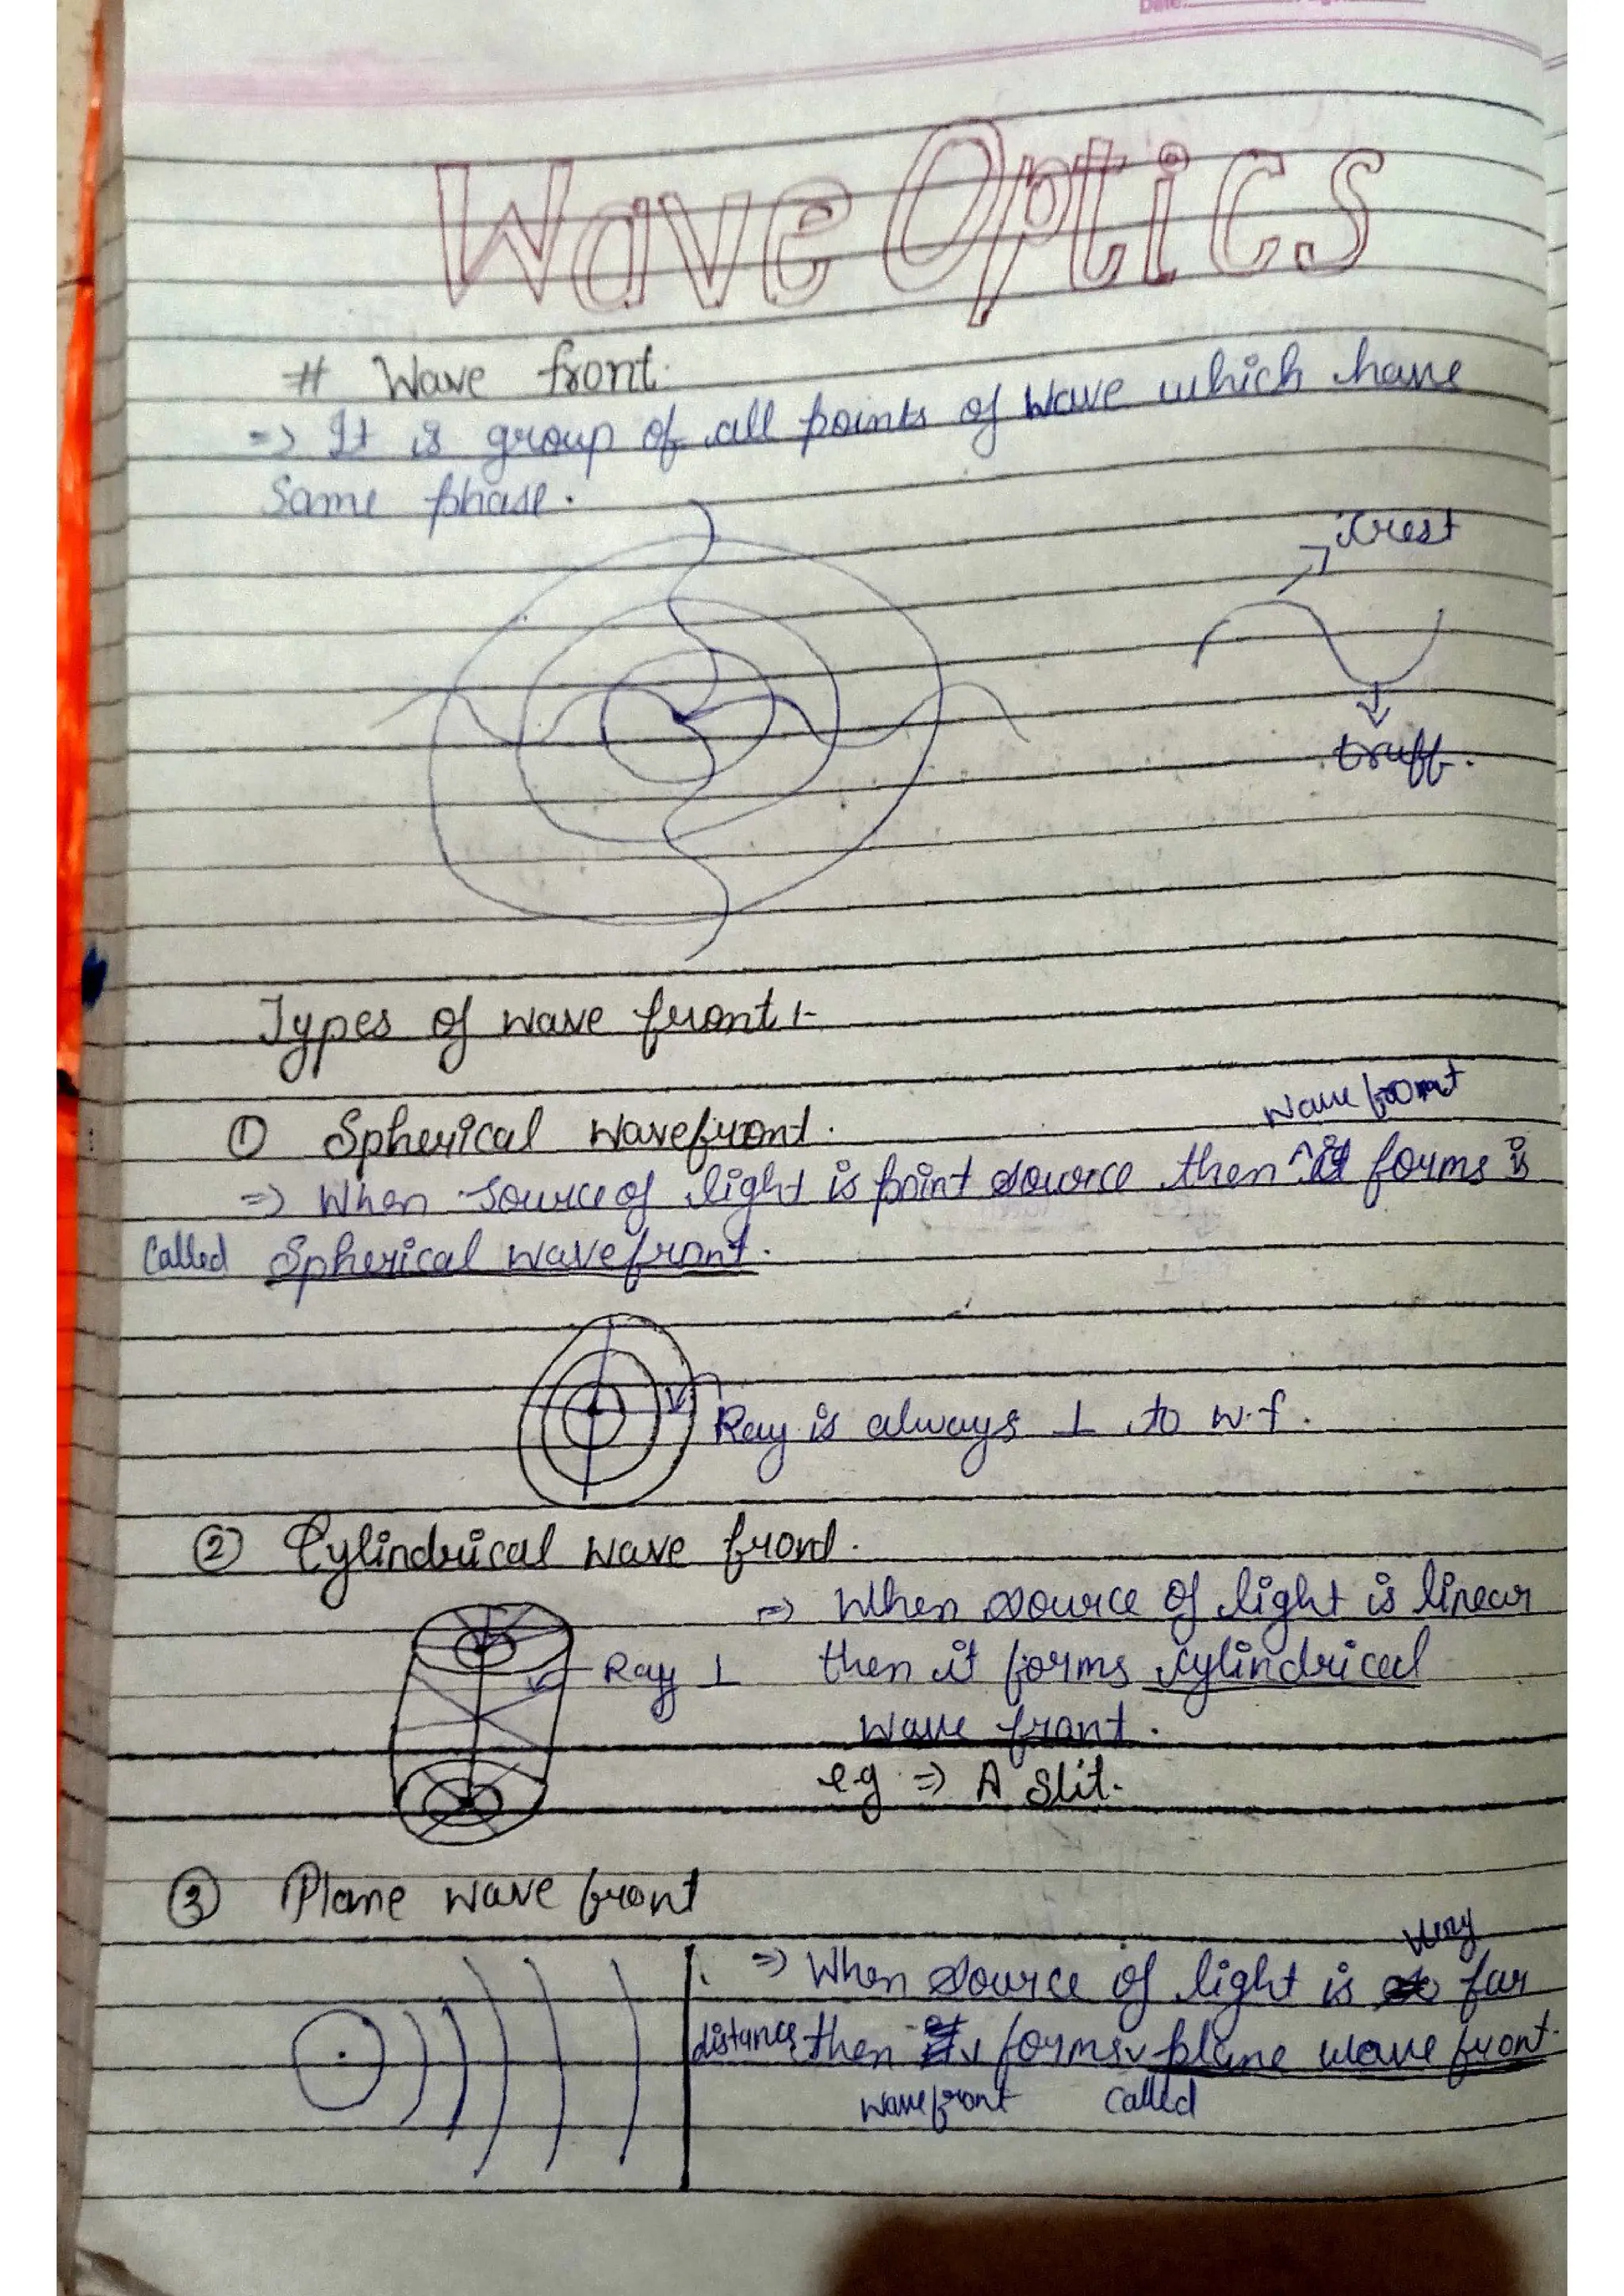 Date:
Wave Optics
# Wave front.
=> It is group of all points of wave which have
Same phase.
crest
truff.
Types of wave front :-
① Spherical wavefront.
wave front
=> When source of light is point source then ^ it forms is
called Spherical wavefront.
Ray is always ⊥ to w.f.
② Cylindrical wave front.
=> When source of light is linear
Ray ⊥ then it forms cylindrical
wave front.
e.g => A slit.
③ Plane wave front
very
=> When source of light is far
distance then forms plane wave front.
wavefront called